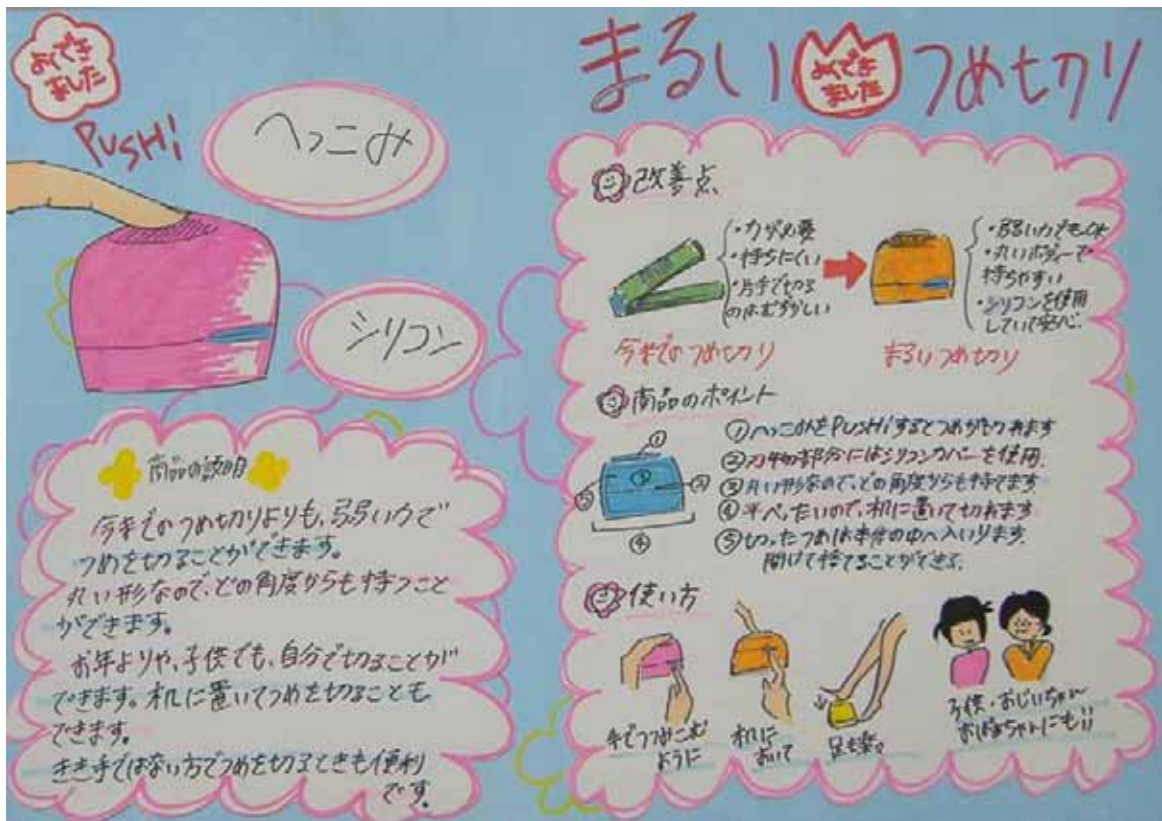 よくでき
ました
PUSH!
へっこみ
シリコン
商品の説明
今までのつめ切りよりも、弱い力で
つめを切ることができます。
丸い形なので、どの角度からも持つこと
ができます。
お年よりや、子供でも、自分で切ることが
できます。机に置いてつめを切ることも
できます。
きき手ではない方でつめを切るときも便利
です。
まるいつめ切り
よくでき
ました
改善点
・力が必要
・持ちにくい
・片手で切る
のはむずかしい
今までのつめ切り
・弱い力でもOK
・丸いボディーで
持ちやすい
・シリコンを使用
していて安心
まるいつめ切り
商品のポイント
① ② ③ ④ ⑤
①へっこみをPUSHiするとつめがきれます
②刃物の部分にはシリコンカバーを使用
③丸い形なので、どの角度からも持てます
④平べったいので、机に置いて切れます
⑤切ったつめは本体の中へ入いります
開けて捨てることができる。
使い方
手でつつみこむ
ように
机に
おいて
足も楽々
子供・おじいちゃん
おばあちゃんにも!!